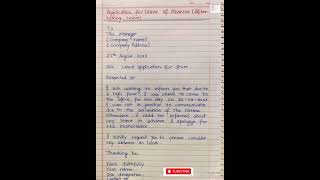 Application for Leave of Absence (After
taking leave)
To
The Manager
[Company Name]
[Company Address]
25th August, 20
Sub : Leave application for fever
Respected Sir
I am writing to inform you that due to
a high fever, I was unable to come to
the office for one day on
I was not in position to communicate
due to the seriousness of the illness.
Otherwise, I could have informed about
my leave in advance. I apologize for
the inconvenience.
I kindly request you to please consider
my absence as leave.
Thanking You,
Yours faithfully
Your name
Job designation
SUBSCRIBE